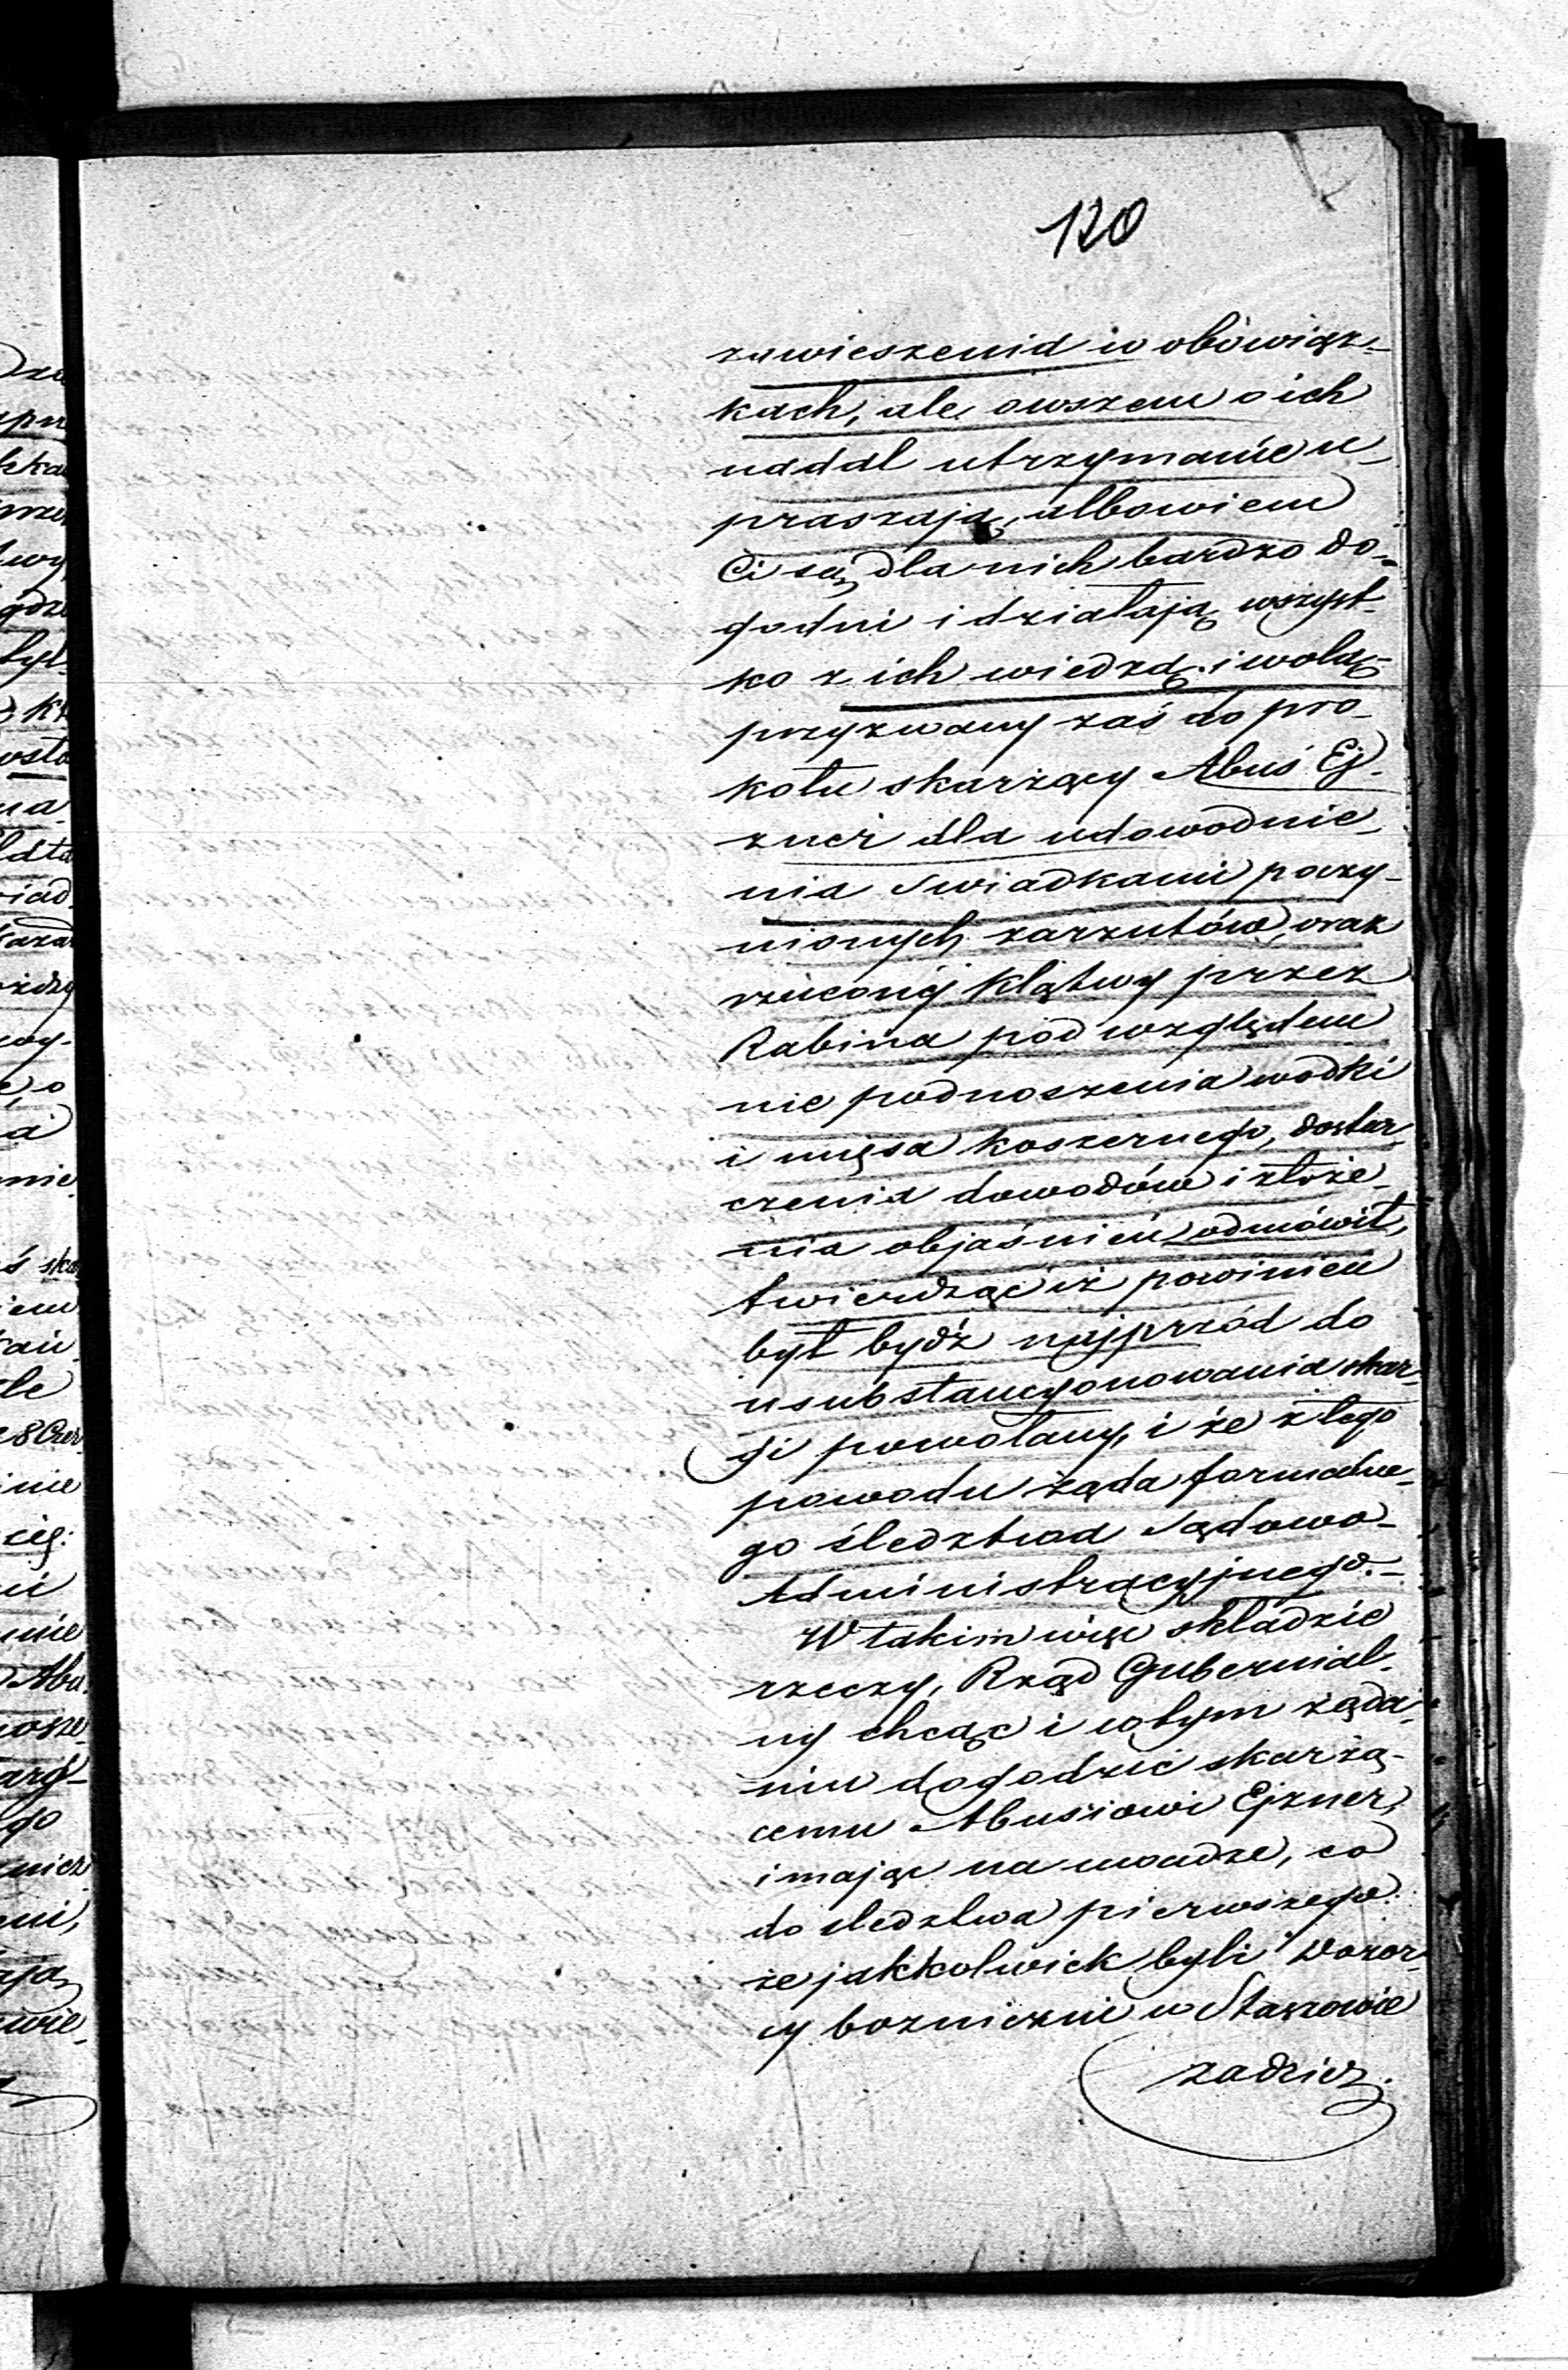 120
zawieszenia w obowiąz-
kach, ale owszem o ich
nadal utrzymanie u-
praszają, albowiem
Ci są dla nich bardzo do-
godni i działają wszyst-
ko z ich wiedzą i wolą-
przyzwany zaś do pro-
kołu skarżący Abuś Ej-
zner dla udowodnie-
nia Swiadkami poczy-
nionych zarzutów, oraz
rzuconéj klątwy przez
Rabina pod względem
nie podnoszenia wodki
i mięsa koszernego, dostar-
czenia dowodów i złoże-
nia objaśnień odmówił,
twierdząc iż powinien
był bydź najprzód do
usubstancyonowania skar-
gi powołany, i że z tego
powodu żąda formalne-
go śledztwa Sądowo-
Administracyjnego.-
W takim więc składzie
rzeczy, Rząd Gubernial-
ny chcąc i w tym żąda-
niu dogodzić skarżą-
cemu Abusiowi Ejzner,
i mając na uwadze, co
do śledztwa pierwszego.
że jakkolwiek byli Dozor-
cy bozniczni w Staszowie
zadzier.